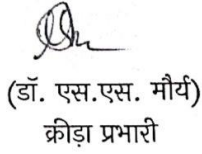 (डॉ. एस.एस. मौर्य)
क्रीड़ा प्रभारी